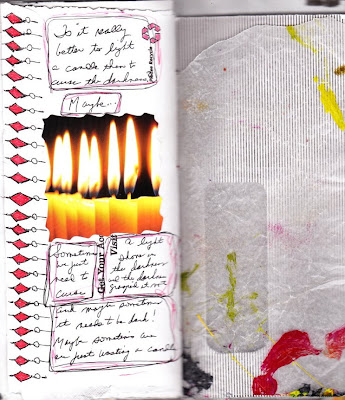 Is it really
better to light
a candle than to
curse the darkness
Please Recycle
Maybe...
Sometimes
we just
need to
curse
Get Your Acc
Visit
A light
shone in
the darkness
and the darkness
grasped it not
and maybe sometimes
it needs to be dark!
Maybe sometimes we
are just wasting a candle